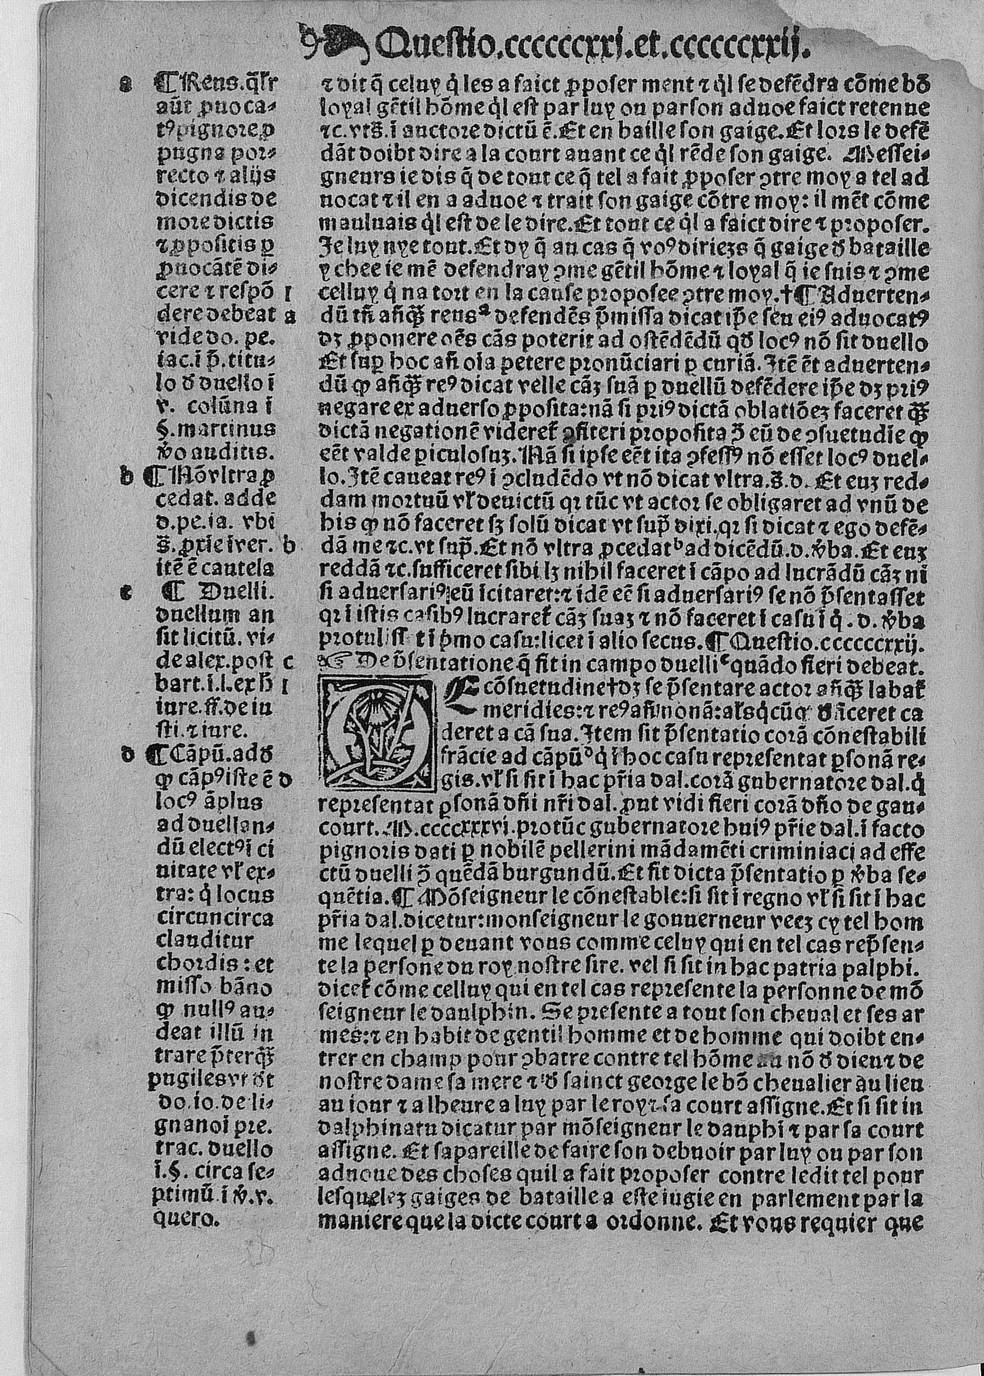 Questio.ccccccxxj.et.ccccccxxij.
a ¶ Reus. q̄lr
aūt ꝓuoca-
tꝰ pignore ꝓ
pugna por-
recto ⁊ alijs
dicendis de
more dictis
⁊ ꝓpositis ꝑ
ꝓuocātē di-
cere ⁊ respō
dere debeat
vide do. pe.
iac. ī p̄. titu-
lo d̄ duello ī
v. colūna ī
§. martinus
v̊o auditis.
b ¶ Nō vltra ꝓ
cedat. adde
d. pe. ia. vbi
s̄. ꝓxie ī ver.
itē ē cautela
c ¶ Duelli.
duellum an
sit licitū. vi-
de alex. post
bart. ī. l. ex h̄
iure. ff. de iu
sti. ⁊ iure.
d ¶ Cāpū. ad d̄
ꝙ cāpꝰ iste ē
locꝰ āplus
ad duellan-
dū electꝰ ī ci
uitate vł ex-
tra: q̇ locus
circuncirca
clauditur
chordis: et
misso bāno
ꝙ nullꝰ au-
deat illū in
trare p̄terq̄ȝ
pugiles vt d̄t
do. io. de li-
gnano ī pre.
trac. duello
ī. §. circa se-
ptimū. ī v̊. v.
quero.
⁊ dit q̄ celuy q̇ les a faict ꝓposer ment ⁊ q̇l se defēdra cōme bō
loyal gētil hōme q̇l est par luy ou par son aduoe faict retenue
⁊c. vts̄. ī auctore dictū ē. Et en baille son gaige. Et lors le defē
dāt doibt dire a la court auant ce q̇l rēde son gaige. Messei-
gneurs ie dis q̄ de tout ce q̄ tel a fait ꝓposer ꝯtre moy a tel ad
uocat ⁊ il en a aduoe ⁊ trait son gaige cōtre moy: il mēt cōme
mauluais q̇l est de le dire. Et tout ce q̇l a faict dire ⁊ proposer.
Je luy nye tout. Et dy q̄ au cas q̄ voꝰ diriezs q̄ gaige d̄ bataille
y chee ie mē defendray ꝯme gētil hōme ⁊ loyal q̄ ie suis ⁊ ꝯme
celluy q̇ na tort en la cause proposee ꝯtre moy. † ¶ Aduerten-
dū tn̄ an̄q̄ȝ reus a defendēs p̄missa dicat ip̄e seu eiꝰ aduocatꝰ
dȝ ꝓponere oēs cās poterit ad ostēdēdū qd̄ locꝰ nō sit duello
Et suꝑ hoc an̄ oīa petere pronūciari ꝑ curiā. Itē ēt aduerten-
dū ꝙ an̄q̄ȝ reꝰ dicat velle cāȝ suā ꝑ duellū defēdere ip̄e dȝ priꝰ
negare ex aduerso ꝓposita: nā si priꝰ dictā oblatiōeȝ faceret q̄ȝ
dictā negationē videreť ꝯfiteri proposita ꝯ̄ eū de ꝯsuetudīe ꝙ
eēt valde ꝑiculosuȝ. Nā si ipse eēt ita ꝯfessꝰ nō esset locꝰ duel-
lo. Itē caueat reꝰ ī ꝯcludēdo vt nō dicat vltra. s̄. d. Et euȝ red-
dam mortuū vł deuictū qꝛ tūc vt actor se obligaret ad vnū de
his ꝙ nō faceret sȝ solū dicat vt sup̄ dixi. qꝛ si dicat ⁊ ego defē-
dā me ⁊c. vt sup̄. Et nō vltra ꝓcedat b ad dicēdū. d. v̊ba. Et euȝ
reddā ⁊c. sufficeret sibi lȝ nihil faceret ī cāpo ad lucrādū cāȝ ni
si aduersariꝰ eū īcitaret: ⁊ idē eē si aduersariꝰ se nō p̄sentasset
qꝛ ī istis casibꝰ lucrareť cāȝ suaȝ ⁊ nō faceret ī casu ī q̇. d. v̊ba
protulisset ī p̄mo casu: licet ī alio secus. ¶ Questio. ccccccxxij.
☞ De p̄sentatione q̄ fit in campo duelli c quādo fieri debeat.
DE cōsuetudine † dȝ se p̄sentare actor an̄q̄ȝ labať
meridies: ⁊ reꝰ an̄ nonā: als q̇cūq̄ d̄ficeret ca
deret a cā sua. Item fit p̄sentatio corā cōnestabili
frācie ad cāpū d q̇ ī hoc casu representat ꝑsonā re-
gis. vł si sit ī hac pr̄ia dal. corā gubernatore dal. q̇
representat ꝑsonā dn̄i nr̄i dal. ꝓut vidi fieri corā dn̄o de gau-
court. M. ccccxxxvi. pro tūc gubernatore huiꝰ pr̄ie dal. ī facto
pignoris dati ꝑ nobilē pellerini mādamēti criminiaci ad effe
ctū duelli ꝯ̄ quēdā burgundū. Et fit dicta p̄sentatio ꝑ v̊ba se-
quētia. ¶ Mōseigneur le cōnestable: si sit ī regno vł si sit ī hac
pr̄ia dal. dicetur: monseigneur le gouuerneur veez cy tel hom
me lequel ꝑ deuant vous comme celuy qui en tel cas rep̄sen-
te la persone du roy nostre sire. vel si sit in hac patria palphi.
diceť cōme celluy qui en tel cas represente la personne de mō
seigneur le daulphin. Se presente a tout son cheual et ses ar
mes: ⁊ en habit de gentil homme et de homme qui doibt en-
trer en champ pour ꝯbatre contre tel hōme au nō d̄ dieu ⁊ de
nostre dame sa mere ⁊ d̄ sainct george le bō cheualier au lieu
au iour ⁊ a lheure a luy par le roy ⁊ sa court assigne. Et si sit in
dalphinatu dicatur par mōseigneur le dauphī ⁊ par sa court
assigne. Et sapareille de faire son debuoir par luy ou par son
aduoue des choses quil a fait proposer contre ledit tel pour
lesquelez gaiges de bataille a este iugie en parlement par la
maniere que la dicte court a ordonne. Et vous requier que